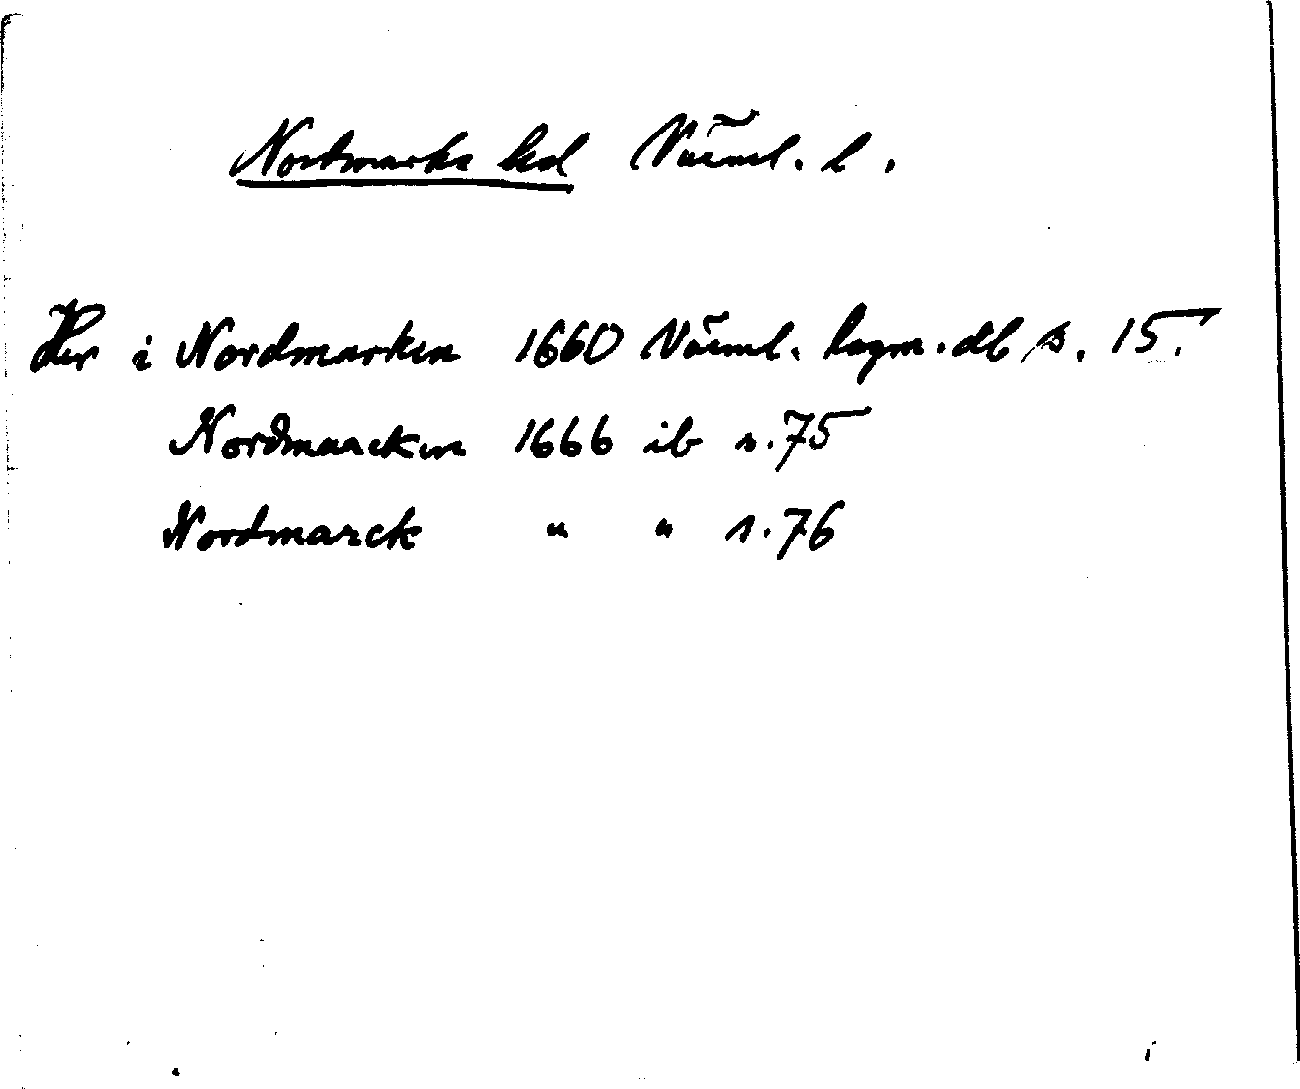 Nordmarks hd Värml. l.
Her i Nordmarken 1660 Värml. lagm. db s. 15.
Nordmarcken 1666 ib s. 75
Nordmarck " " s. 76